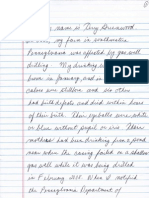 My name is Terry Greenwood
and my farm in southwestern
Pennsylvania was affected by gas well
drilling. My drinking
in January, and in
calves were stillborn and six other
had birth defects and died within hours
of their birth. Their eyeballs were white
or blue without pupil or iris. These
mothers had been drinking from a pond
near where the casing failed on a shallow
gas well while it was being drilled
in February 2008. When I notified
the Pennsylvania Department of